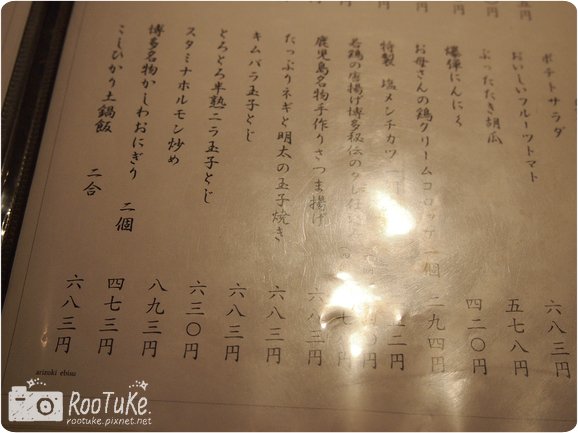 ポテトサラダ 六八三円
おいしいフルーツトマト 五七八円
ぶったたき胡瓜 四二〇円
爆弾にんにく 二九四円
お母さんの鶏クリームコロッケ 一個 二円
特製 塩メンチカツ 円
若鶏の唐揚げ博多秘伝のタレ仕込み 円
鹿児島名物手作りさつま揚げ 六八三円
たっぷりネギと明太の玉子焼き 六八三円
キムバラ玉子とじ 六八三円
とろとろ半熟ニラ玉子とじ 六三〇円
スタミナホルモン炒め 八九三円
博多名物かしわおにぎり 二個 四七三円
こしひかり土鍋飯 二合 六八三円
arizuki ebisu
RooTuKe.
rootuke.pixnet.net